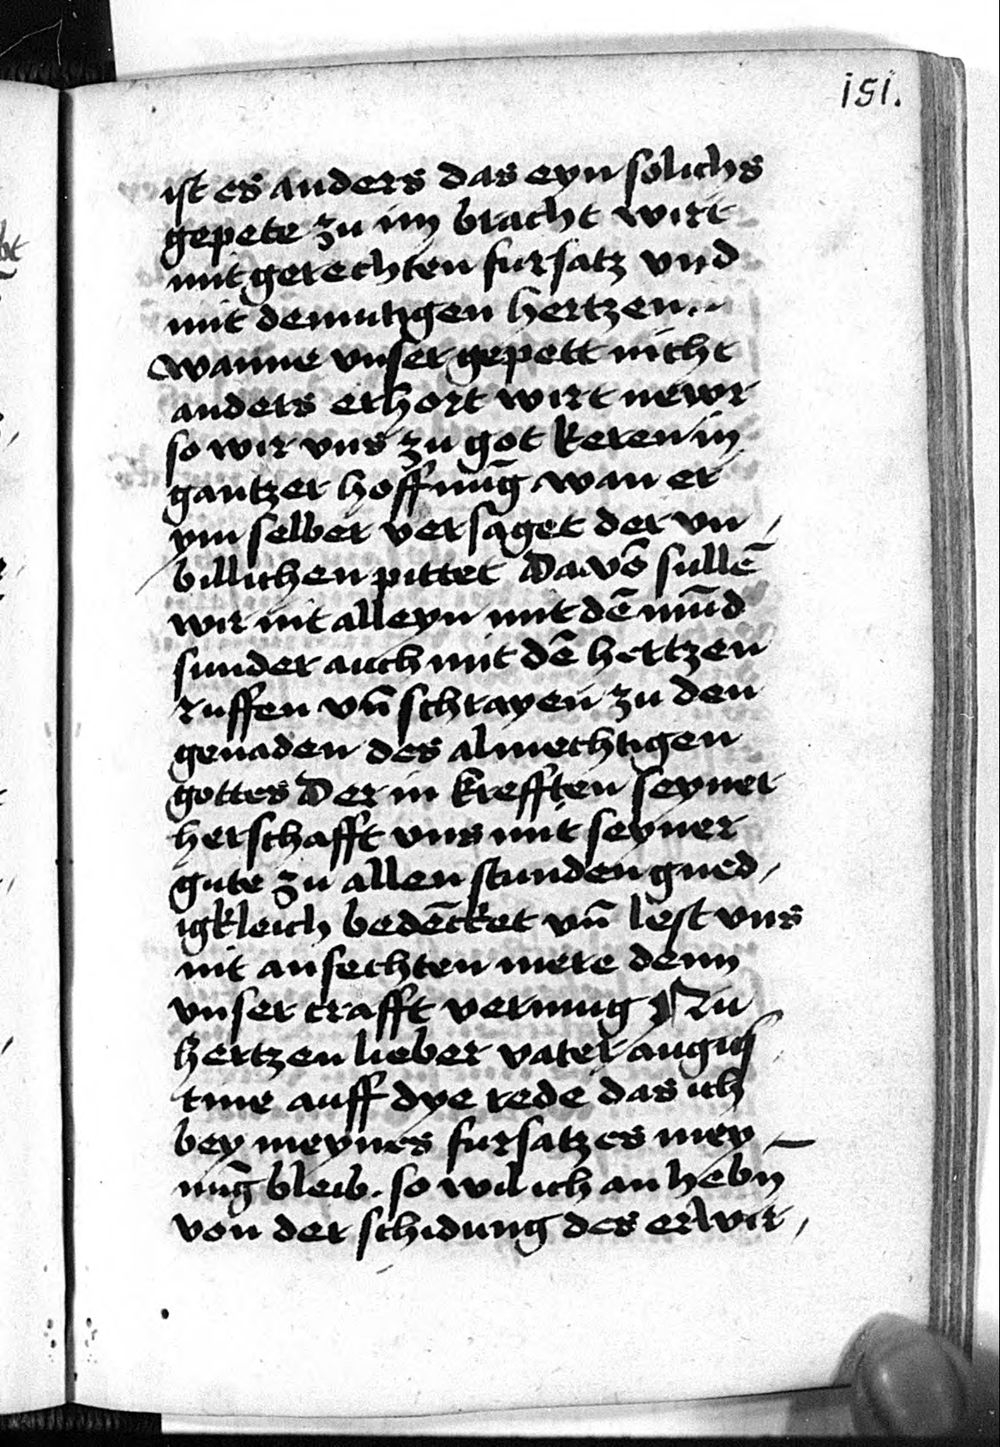 151.
ist es anders das eyn solichs
gepete zu im bracht wirt
mit gerechten fursatz vnd
mit demutigen hertzen.
wanne vnser gepett nicht
anders erhort wirt newr
so wir vns zu got keren in
gantzer hoffnu̅g wan er
ym selber versaget der vn
billichen pittet Davo̅ sulle̅
wir nit alleyn mit de̅ mu̅d
sunder auch mit de̅ hertzen
ruffen vn̅ schrayen zu den
genaden des almechtigen
gottes Der in krefften seyner
herschafft vns mit seyner
gute zu allen stunden gned,
igkleich bede̅cket vn̅ lest vns
nit anfechten mere denn
vnser crafft vermug Nu
hertzen lieber vater augus
tine auff dye rede das ich
bey meynes fursatzes mey
nu̅g bleib. so wil ich an hebn̅
von der schidung des erwir,